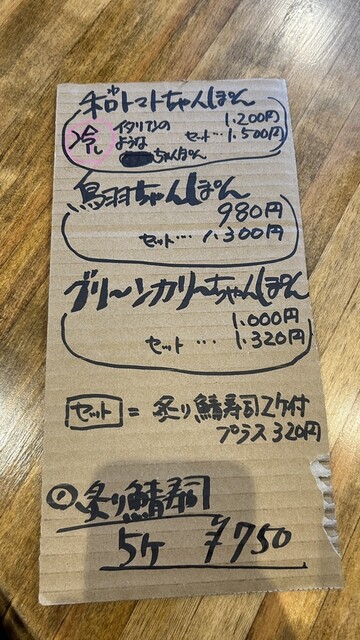 和ロトマトちゃんぽん
冷 イタリアンの 1,200円
ような セット… 1,500円
ちゃんぽん
鳥羽ちゃんぽん
980円
セット… 1,300円
グリーンカリーちゃんぽん
1,000円
セット… 1,320円
セット = 炙り鯖寿司2ケ付
プラス320円
炙り鯖寿司
5ケ ¥750